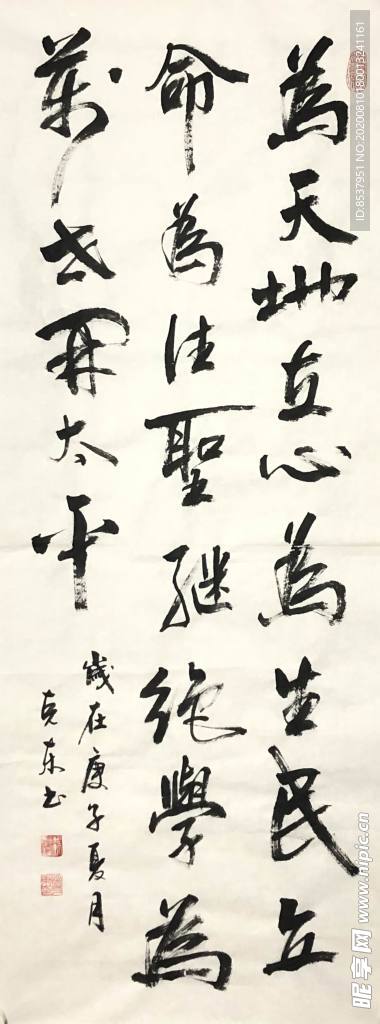 為天地立心為生民立
命為往聖継絶學為
萬世開太平
歲在庚子夏月
克东书
ID:8537951 NO:20200810180013241161
昵享网 www.nipic.cn